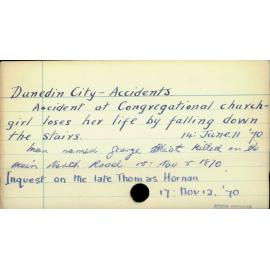 Dunedin City - Accidents
Accident at Congregational church-
girl loses her life by falling down
the stairs. 14: June 11 '70
Man named George Elliot killed on the
main North Road 15: Nov 5 1870
Inquest on the late Thomas Hornan
17: Nov 12. '70